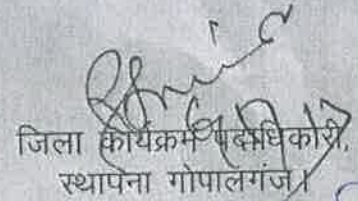 जिला कार्यक्रम पदाधिकारी,
स्थापना गोपालगंज।